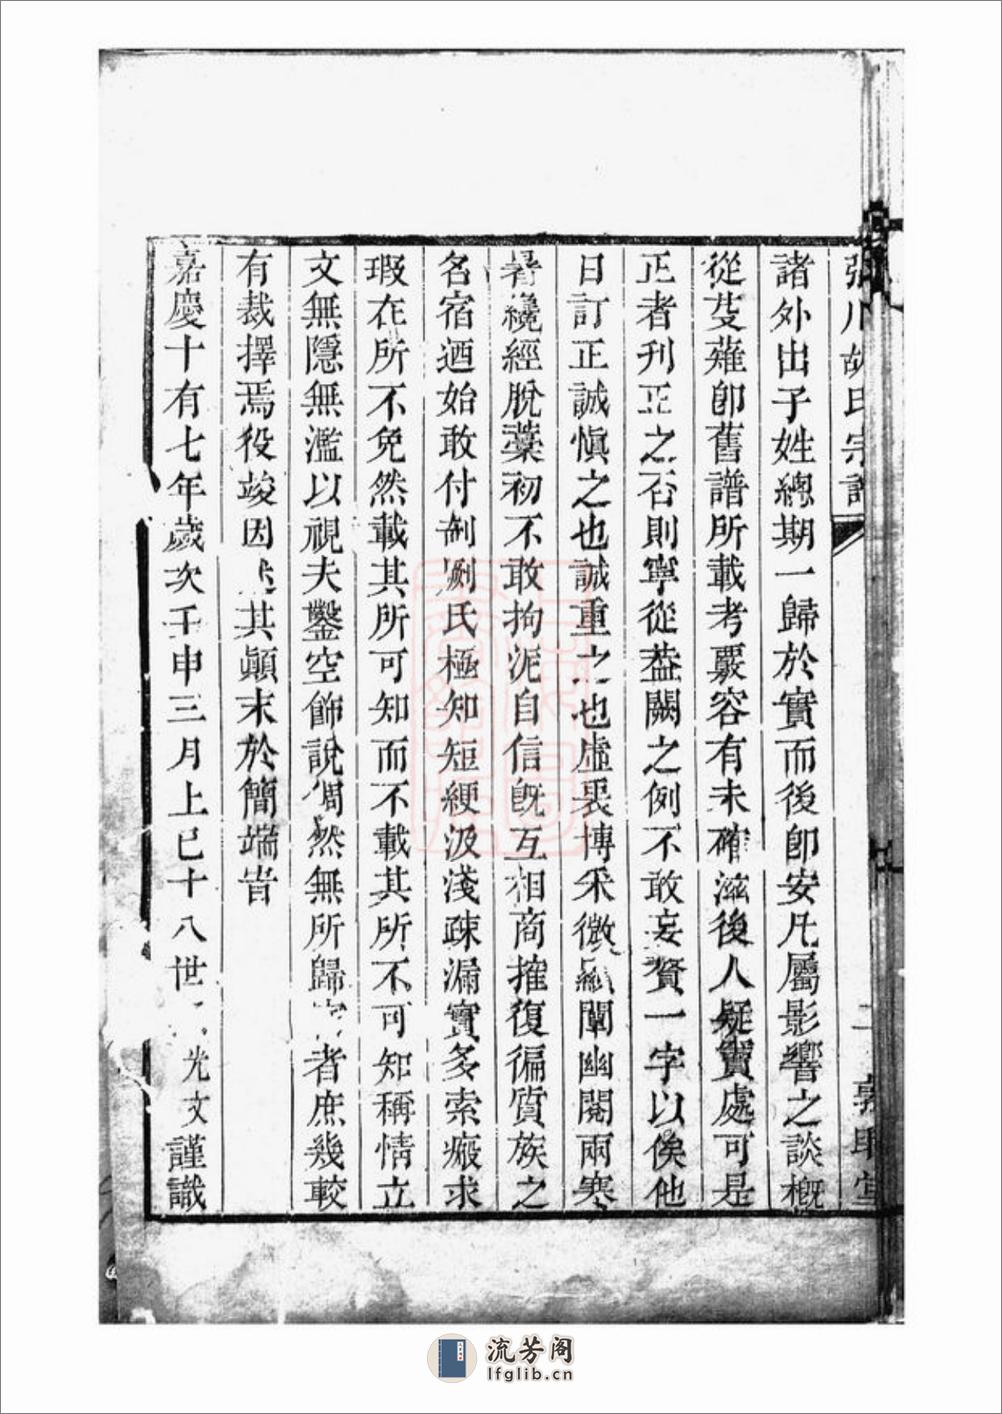 川胡氏宗譜
諸外出子姓總期一歸於實而後卽安凡屬影響之談槪
從芟薙卽舊譜所載考覈容有未確滋後人疑竇處可是
正者刊正之否則寧從葢闕之例不敢妄贅一字以俟他
日訂正誠愼之也誠重之也虛衷博采微闡幽閱兩寒
暑纔經脫藁初不敢拘泥自信旣互相商搉復徧質族之
名宿迺始敢付剞劂氏極知短綆汲淺疎漏實多索瘢求
瑕在所不免然載其所可知而不載其所不可知稱情立
文無隱無濫以視夫鑿空飾說惘然無所歸者庶幾較
有裁擇焉役竣因其顚末於簡端旹
嘉慶十有七年歲次壬申三月上巳十八世光文謹識
二
流芳阁
lfglib.cn